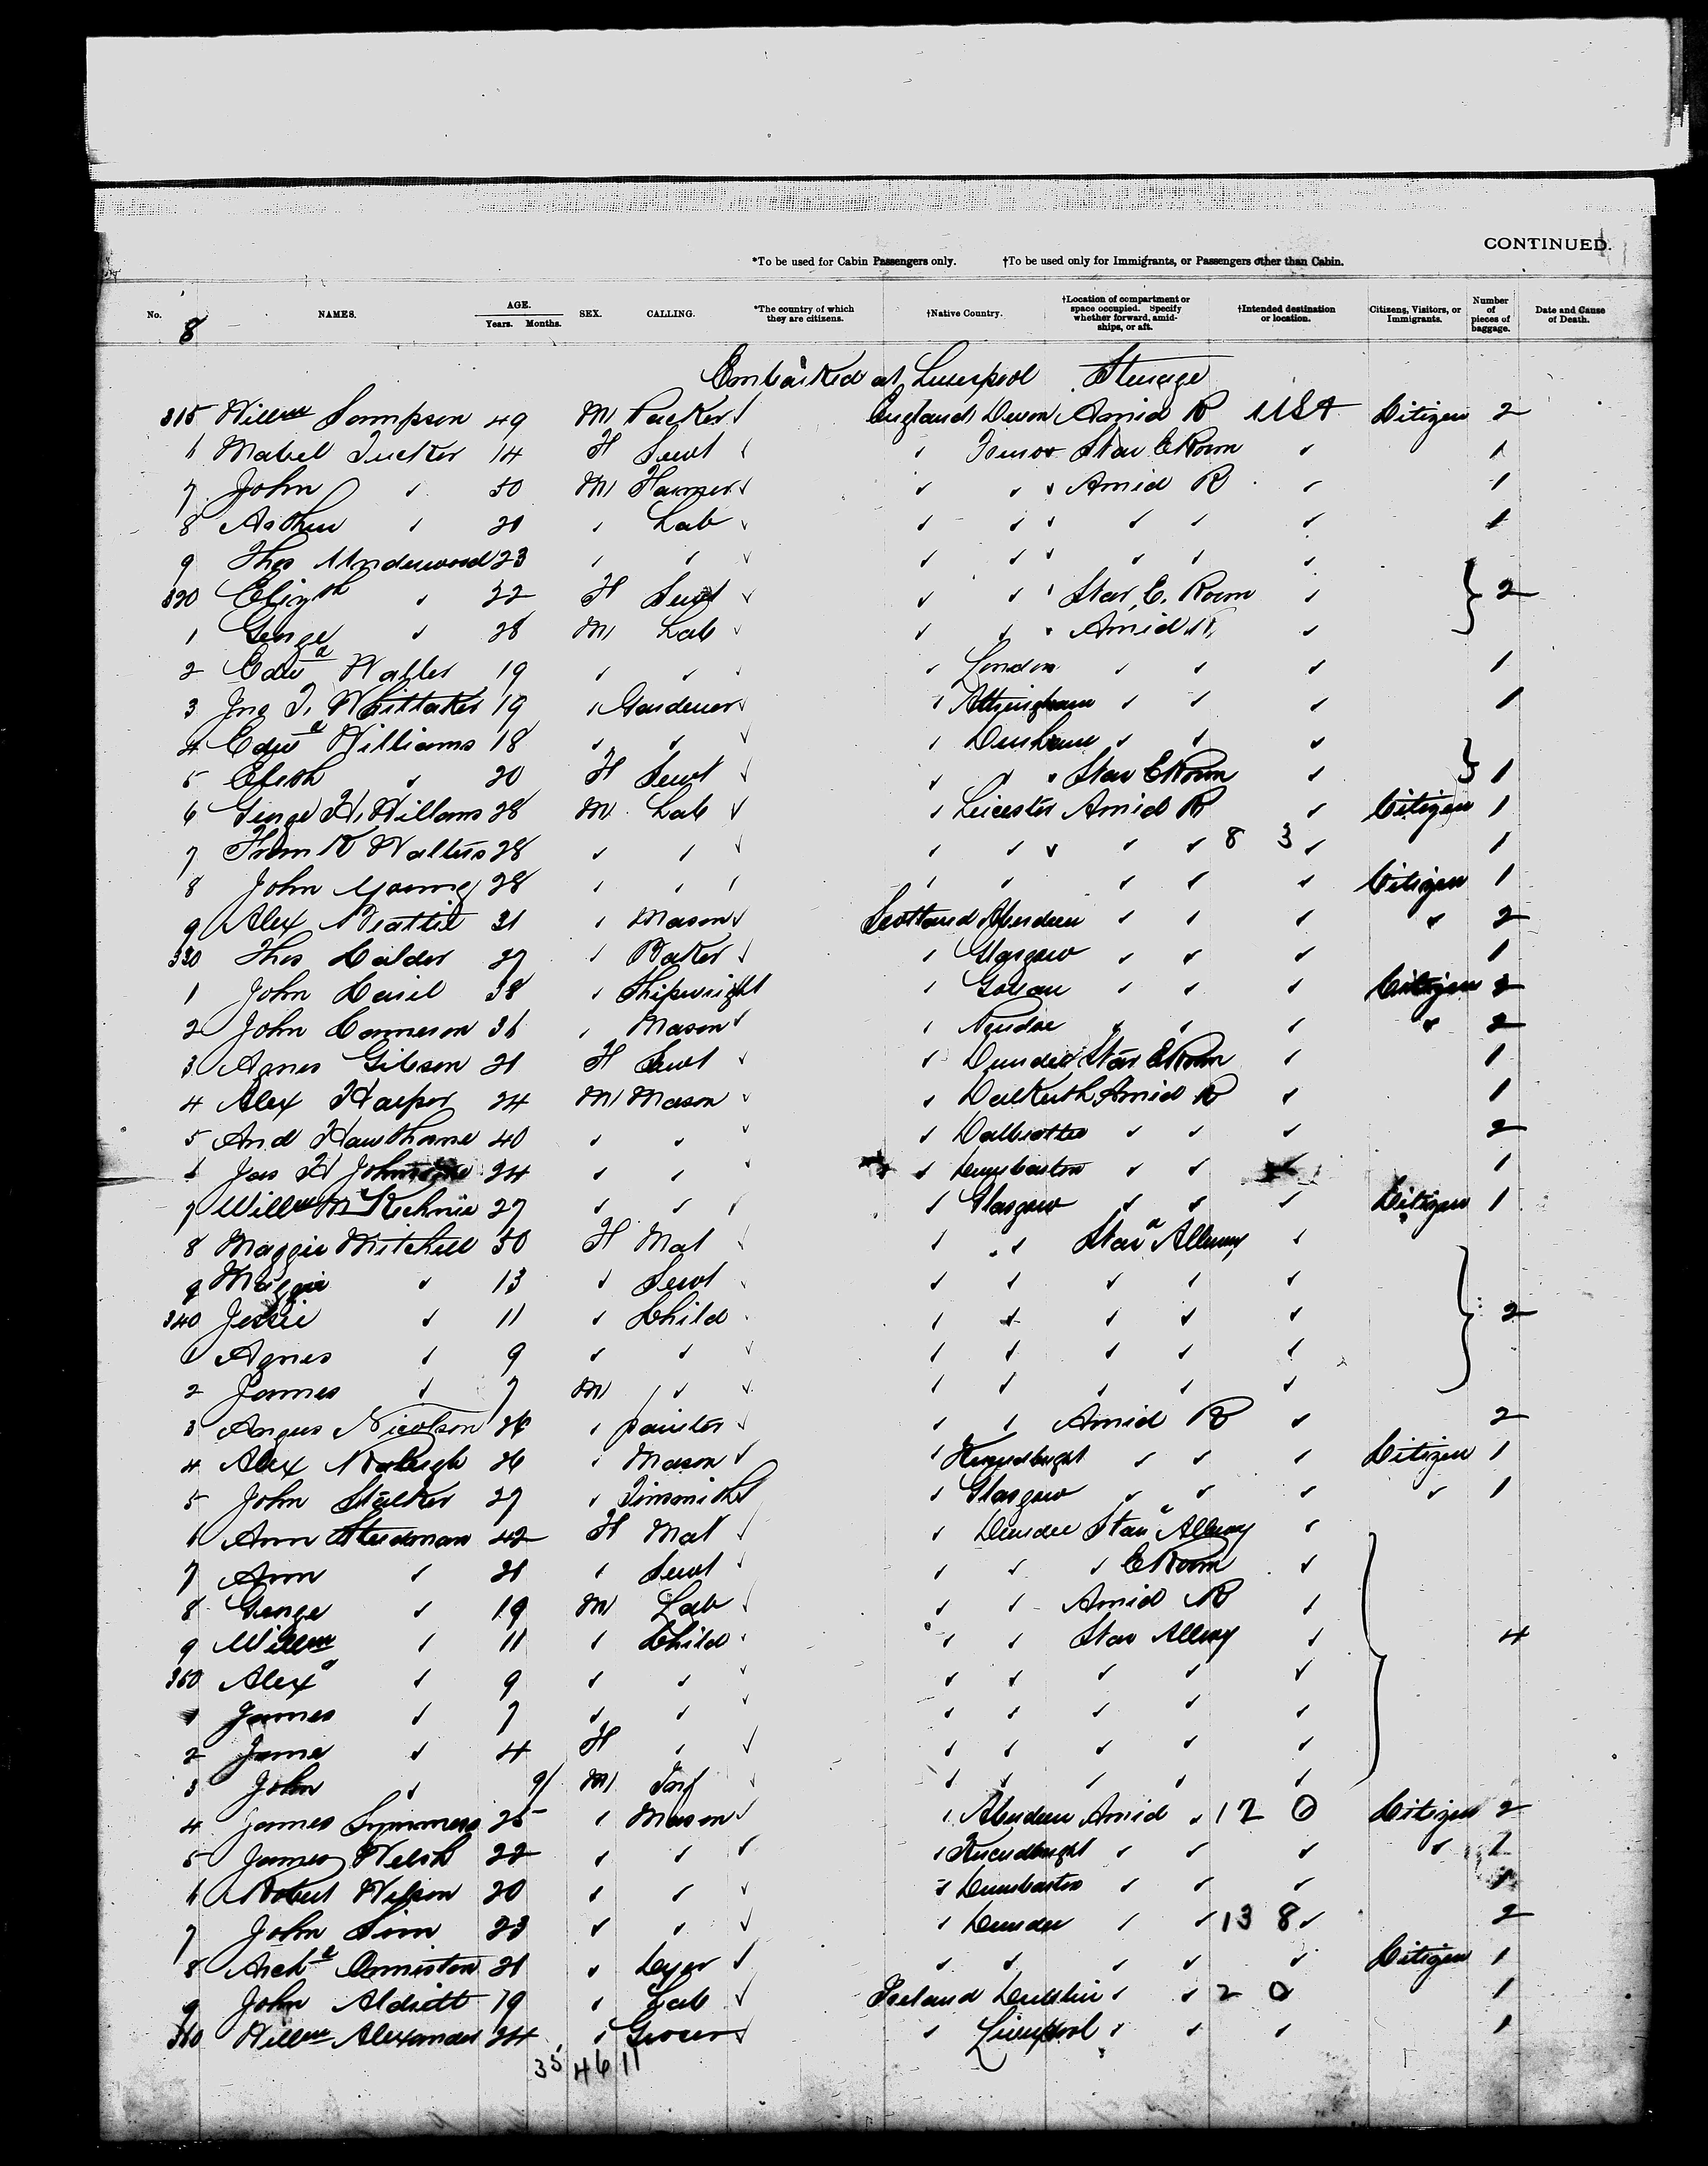 CONTINUED.
*To be used for Cabin Passengers only. †To be used only for Immigrants, or Passengers other than Cabin.
No. NAMES. AGE. Years. Months. SEX. CALLING. *The country of which they are citizens. †Native Country. †Location of compartment or space occupied. Specify whether forward, amidships, or aft. †Intended destination or location. Citizens, Visitors, or Immigrants. Number of pieces of baggage. Date and Cause of Death.
8
Embarked at Liverpool Steerage
315 Willm Sampson 49 M Packer England Devon Amid R USA Citizen 2
6 Mabel Tucker 14 F Servt ✓ Star E Room ✓ 1
7 John ✓ 50 M Farmer ✓ ✓ ✓ Amid R ✓ 1
8 Arthur ✓ 21 ✓ Lab ✓ ✓ ✓ ✓ ✓ 1
9 Thos Underwood 23 ✓ ✓ ✓ ✓ ✓ ✓ ✓
320 Elizth ✓ 22 F Servt ✓ ✓ Star E. Room ✓ } 2
1 George ✓ 28 M Lab ✓ ✓ Amid R ✓
2 Edwd Waller 19 ✓ ✓ ✓ London ✓ ✓ ✓ 1
3 Jno T. Whittaker 19 ✓ Gardener ✓ Altringham ✓ ✓ ✓ 1
4 Edwd Williams 18 ✓ ✓ ✓ Durham ✓ ✓ ✓
5 ✓ 20 F Servt ✓ ✓ Star E Room ✓ } 1
6 George H. Willams 28 M Lab ✓ Leicester Amid R ✓ Citizen 1
7 Walters 28 ✓ ✓ ✓ ✓ ✓ ✓ 8 3 ✓ 1
8 John Young 28 ✓ ✓ ✓ ✓ ✓ ✓ ✓ Citizen 1
9 Alex Beattie 31 ✓ Mason Scotland Aberdeen ✓ ✓ ✓ ✓ 2
330 Thos Calder 27 ✓ Baker ✓ Glasgow ✓ ✓ ✓ 1
1 John 38 ✓ Shipwright ✓ Govan ✓ ✓ ✓ Citizen 2
2 John Cameron 31 ✓ Mason ✓ ✓ ✓ ✓ ✓ 2
3 Agnes Gibson 21 F Servt ✓ Dundee Star E Room ✓ 1
4 Alex Harper 24 M Mason ✓ Dalkeith Amid R ✓ 1
5 And Hawthorne 40 ✓ ✓ ✓ Dalbeattie ✓ ✓ ✓ 2
6 Jas H Johnstone 24 ✓ ✓ ✓ Dumbarton ✓ ✓ 1
7 Willm McKechnie 27 ✓ ✓ ✓ Glasgow ✓ ✓ ✓ Citizen 1
8 Maggie Mitchell 30 F Mat ✓ ✓ Star Allway ✓
9 Maggie ✓ 13 ✓ Servt ✓ ✓ ✓ ✓ ✓
340 Jessie ✓ 11 ✓ Child ✓ ✓ ✓ ✓ ✓ } 2
1 Agnes ✓ 9 ✓ ✓ ✓ ✓ ✓ ✓ ✓
2 James ✓ 7 M ✓ ✓ ✓ ✓ ✓ ✓
3 Angus Nicolson 26 ✓ painter ✓ ✓ Amid R ✓ 2
4 Alex Raleigh 26 ✓ Mason ✓ ✓ ✓ ✓ Citizen 1
5 John Stalker 27 ✓ Tinsmith ✓ Glasgow ✓ ✓ ✓ ✓ 1
6 Ann Steedman 42 F Mat ✓ Dundee Star Allway ✓
7 Ann ✓ 21 ✓ Servt ✓ ✓ ✓ E Room ✓
8 George ✓ 19 M Lab ✓ ✓ Amid R ✓
9 Willm ✓ 11 ✓ Child ✓ ✓ Star Allway ✓ } 4
350 Alexr ✓ 9 ✓ ✓ ✓ ✓ ✓ ✓ ✓
1 James ✓ 7 ✓ ✓ ✓ ✓ ✓ ✓ ✓
2 Jane ✓ 4 F ✓ ✓ ✓ ✓ ✓ ✓
3 John ✓ 9/ M Inf ✓ ✓ ✓ ✓ ✓
4 James Symmers 25 ✓ Mason ✓ Aberdeen Amid ✓ 12 0 Citizen 2
5 James Welsh 22 ✓ ✓ ✓ ✓ ✓ ✓ ✓ 1
6 Robert Wilson 20 ✓ ✓ ✓ Dumbarton ✓ ✓ ✓ 1
7 John Sim 23 ✓ ✓ ✓ Dundee ✓ ✓ 13 8 ✓ 2
8 Archd Ormiston 21 ✓ Dyer ✓ ✓ ✓ ✓ ✓ Citizen 1
9 John Aldritt 19 ✓ Lab Ireland Dublin ✓ ✓ 2 0 1
360 Willm Alexander 24 ✓ Grocer ✓ Liverpool ✓ ✓ ✓ 1
35 46 11